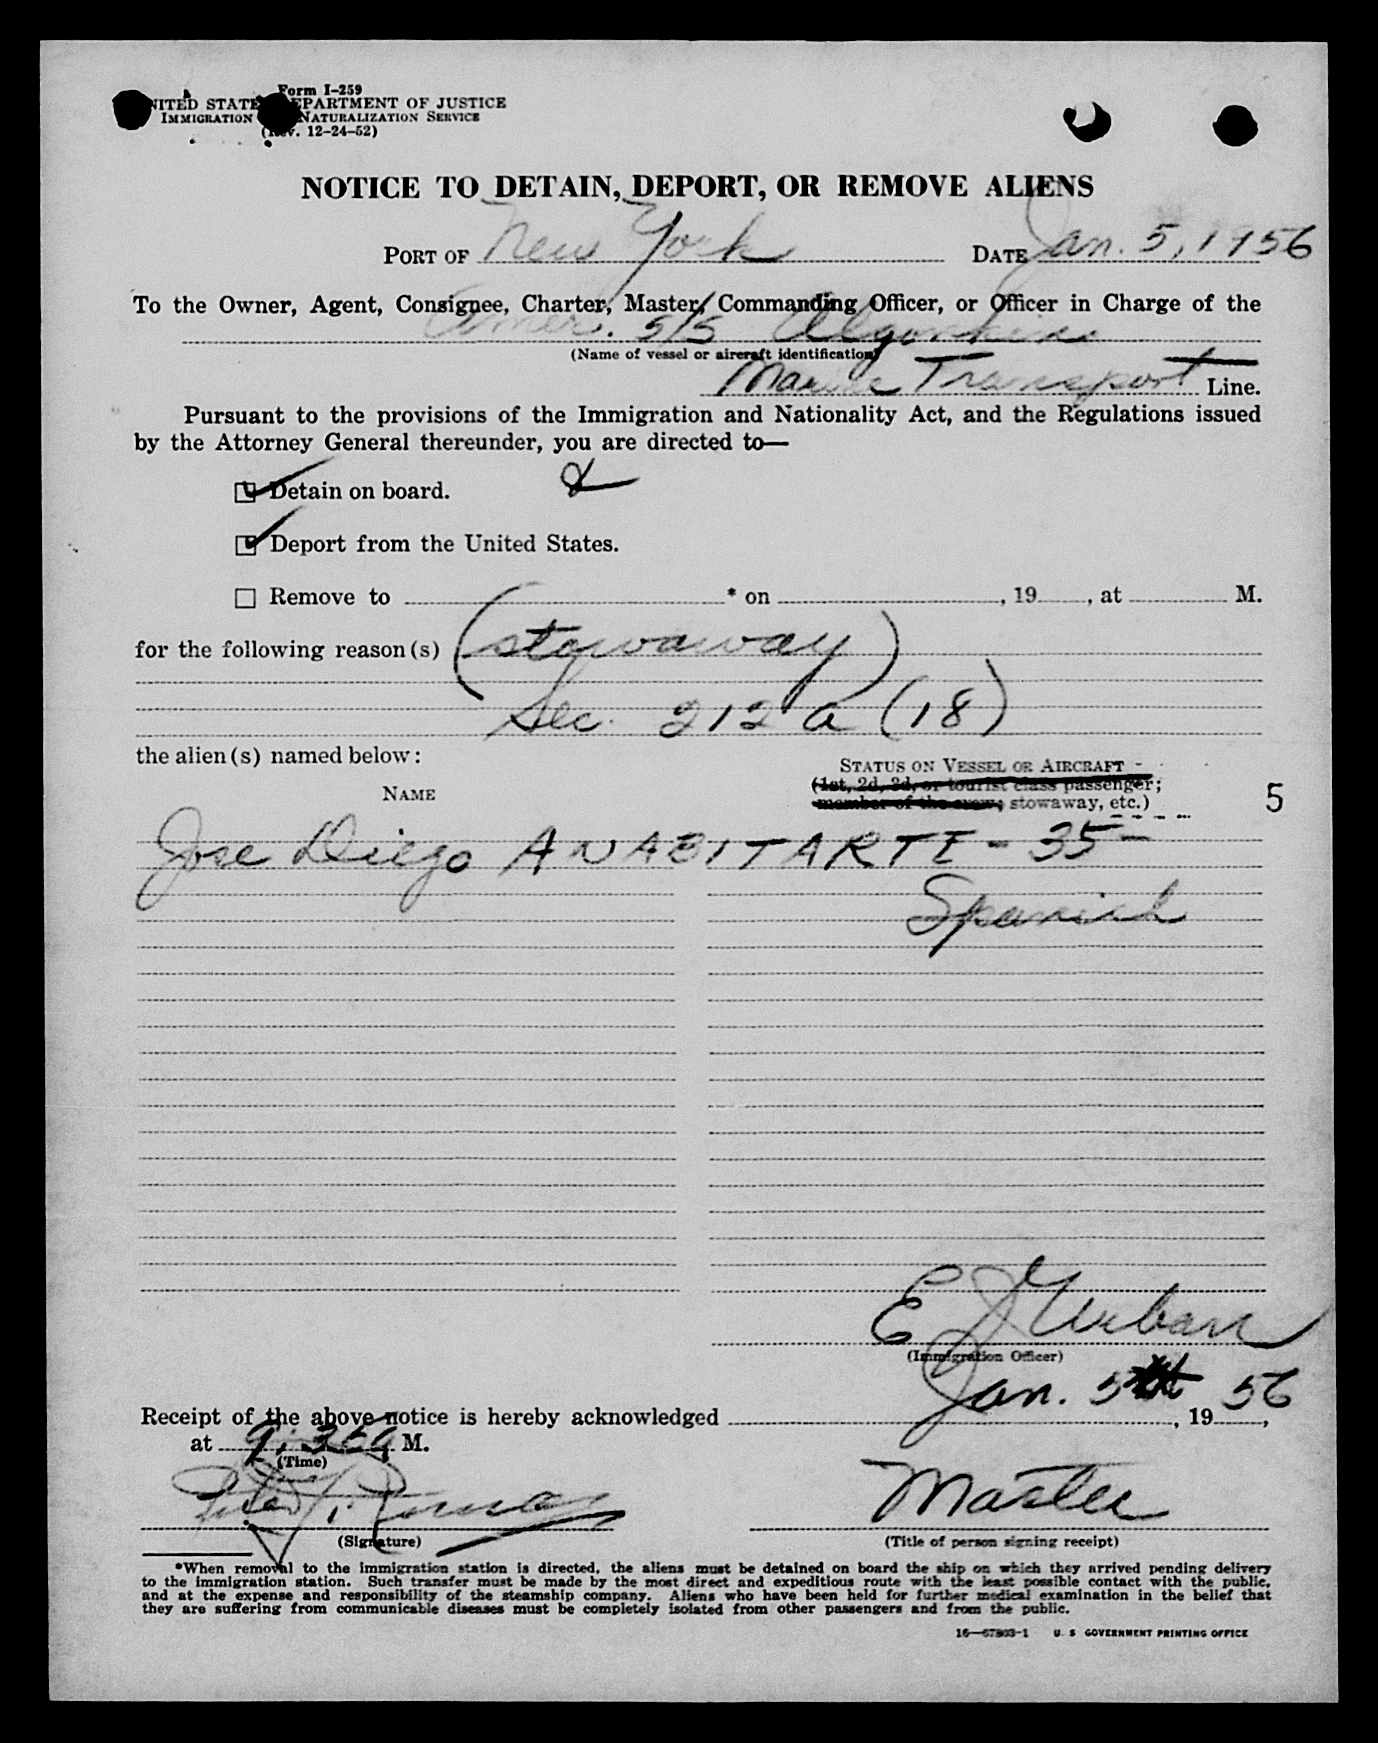 Form I-259
UNITED STATES DEPARTMENT OF JUSTICE
IMMIGRATION NATURALIZATION SERVICE
(Rev. 12-24-52)
NOTICE TO DETAIN, DEPORT, OR REMOVE ALIENS
PORT OF New York DATE Jan. 5, 1956
To the Owner, Agent, Consignee, Charter, Master, Commanding Officer, or Officer in Charge of the
Amer. S/S Algonkin
(Name of vessel or aircraft identification)
Marine Transport Line.
Pursuant to the provisions of the Immigration and Nationality Act, and the Regulations issued
by the Attorney General thereunder, you are directed to—
☑ Detain on board. &
☑ Deport from the United States.
☐ Remove to * on , 19 , at M.
for the following reason(s) (stowaway)
Sec. 212 a (18)
the alien(s) named below:
STATUS ON VESSEL OR AIRCRAFT
NAME (1st, 2d, 3d, or tourist class passenger;
member of the crew; stowaway, etc.) 5
Jose Diego ANABITARTE - 35 -
Spanish
E J Urban
(Immigration Officer)
Receipt of the above notice is hereby acknowledged Jan. 5 , 1956,
at 9:35 a M.
(Time)
Master
(Signature) (Title of person signing receipt)
*When removal to the immigration station is directed, the aliens must be detained on board the ship on which they arrived pending delivery
to the immigration station. Such transfer must be made by the most direct and expeditious route with the least possible contact with the public,
and at the expense and responsibility of the steamship company. Aliens who have been held for further medical examination in the belief that
they are suffering from communicable diseases must be completely isolated from other passengers and from the public.
16—67803-1 U. S. GOVERNMENT PRINTING OFFICE